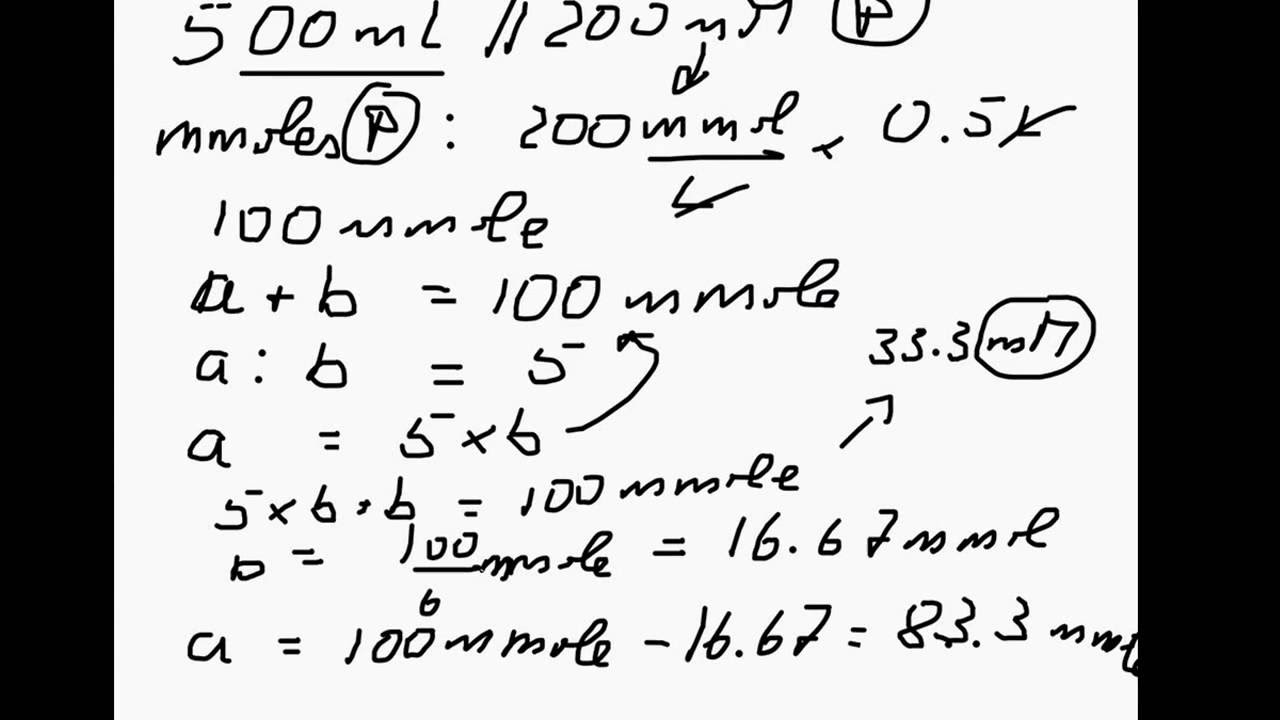 500 ml // 200 mM P
mmoles P : 200 mmol / L × 0.5 L
100 mmole
a + b = 100 mmole
a : b = 5
33.3 mM
a = 5 × b
5 × b + b = 100 mmole
b = 100/6 mmole = 16.67 mmol
a = 100 mmole - 16.67 = 83.3 mmole